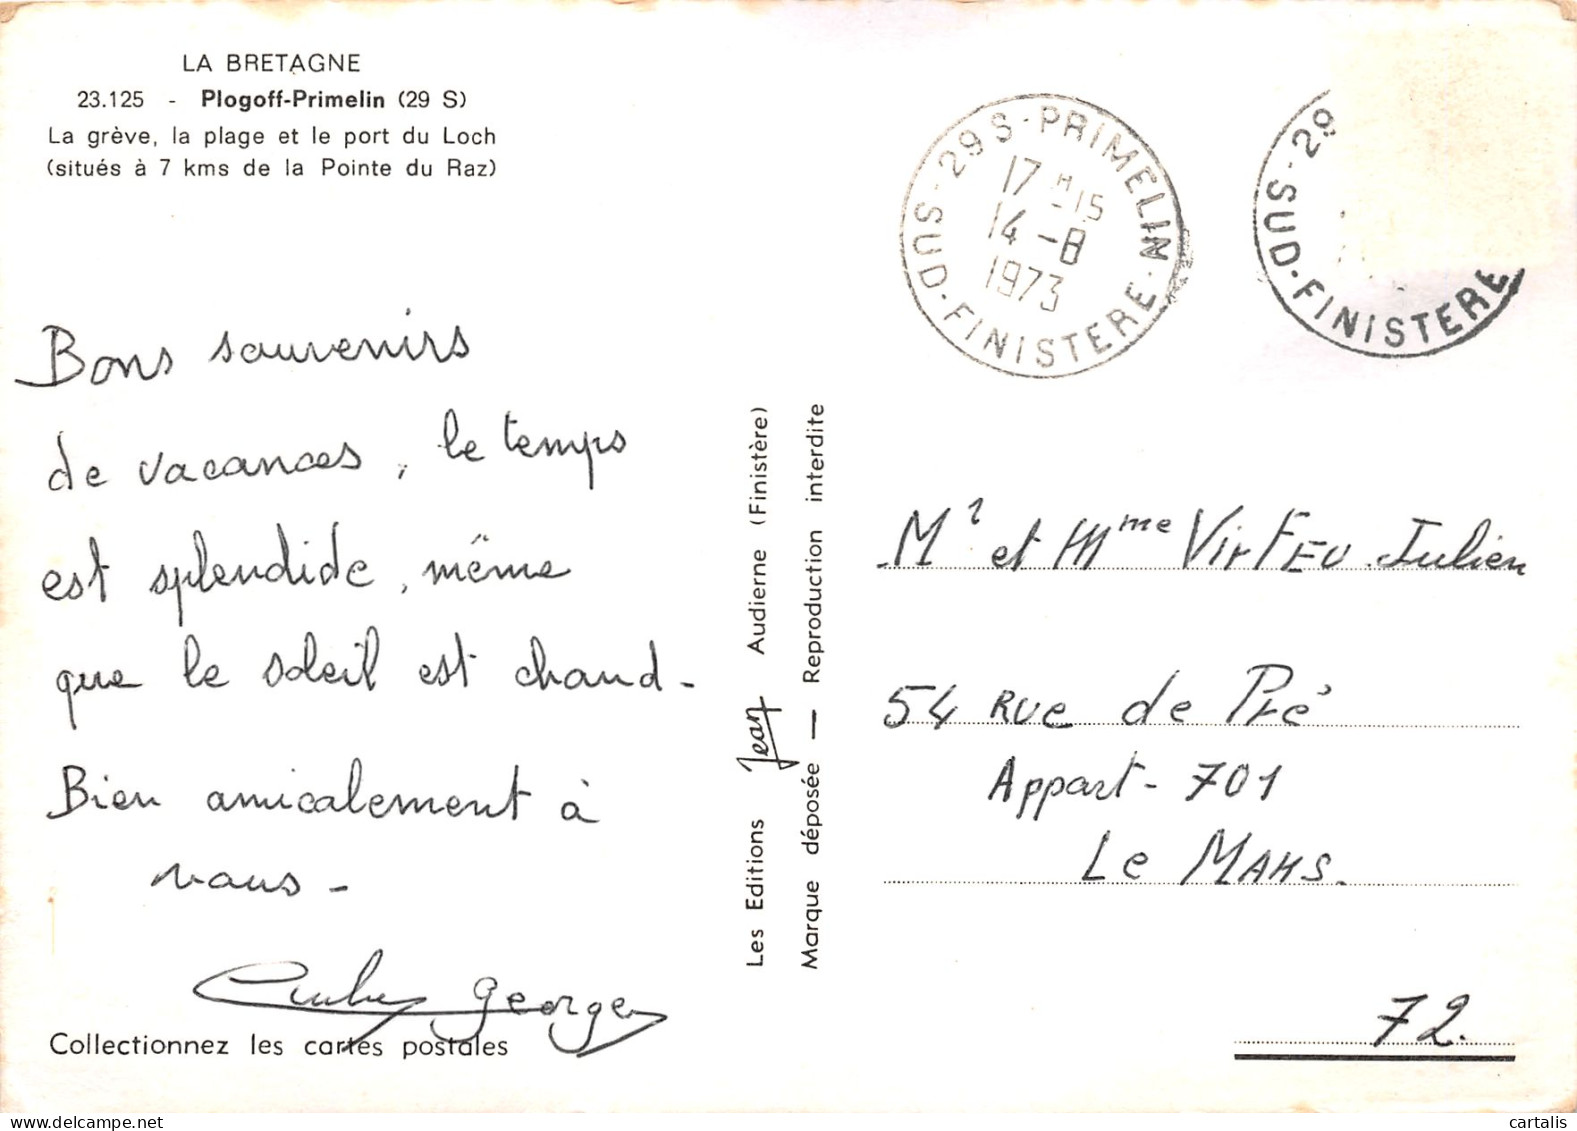 LA BRETAGNE
23.125 - Plogoff-Primelin (29 S)
La grève, la plage et le port du Loch
(situés à 7 kms de la Pointe du Raz)
29 S - PRIMELIN
SUD-FINISTERE
17 H 15
14 -8
1973
29
SUD-FINISTERE
Bons souvenirs
de vacances, le temps
est splendide, même
que le soleil est chaud -
Bien amicalement à
vous -
George
Collectionnez les cartes postales
Les Editions Jean Audierne (Finistère)
Marque déposée — Reproduction interdite
Mr et Mme VirFEU Julien
54 Rue de Pré
Appart - 701
Le MANS.
72.
cartalis